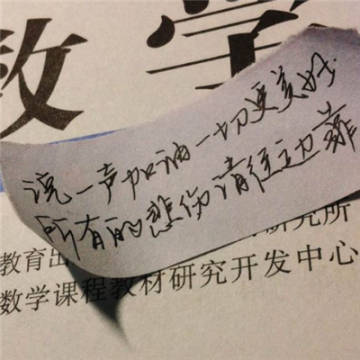 数学
说一声加油一切更美好
所有的悲伤请往边靠
教育出
研究所
数学课程教材研究开发中心